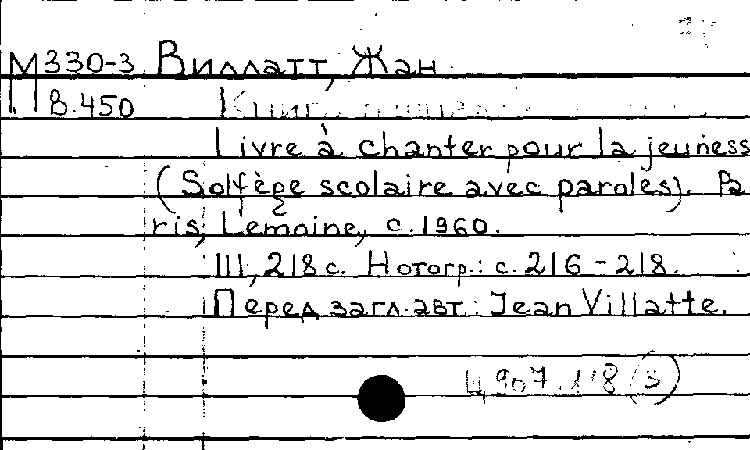 М330-3 Виллатт, Жан
В.450 Книга
Livre à chanter pour la jeuness
(Solfège scolaire avec paroles). Pa
ris, Lemoine, c.1960.
III, 218 с. Нотогр.: с. 216-218.
Перед загл. авт.: Jean Villatte.